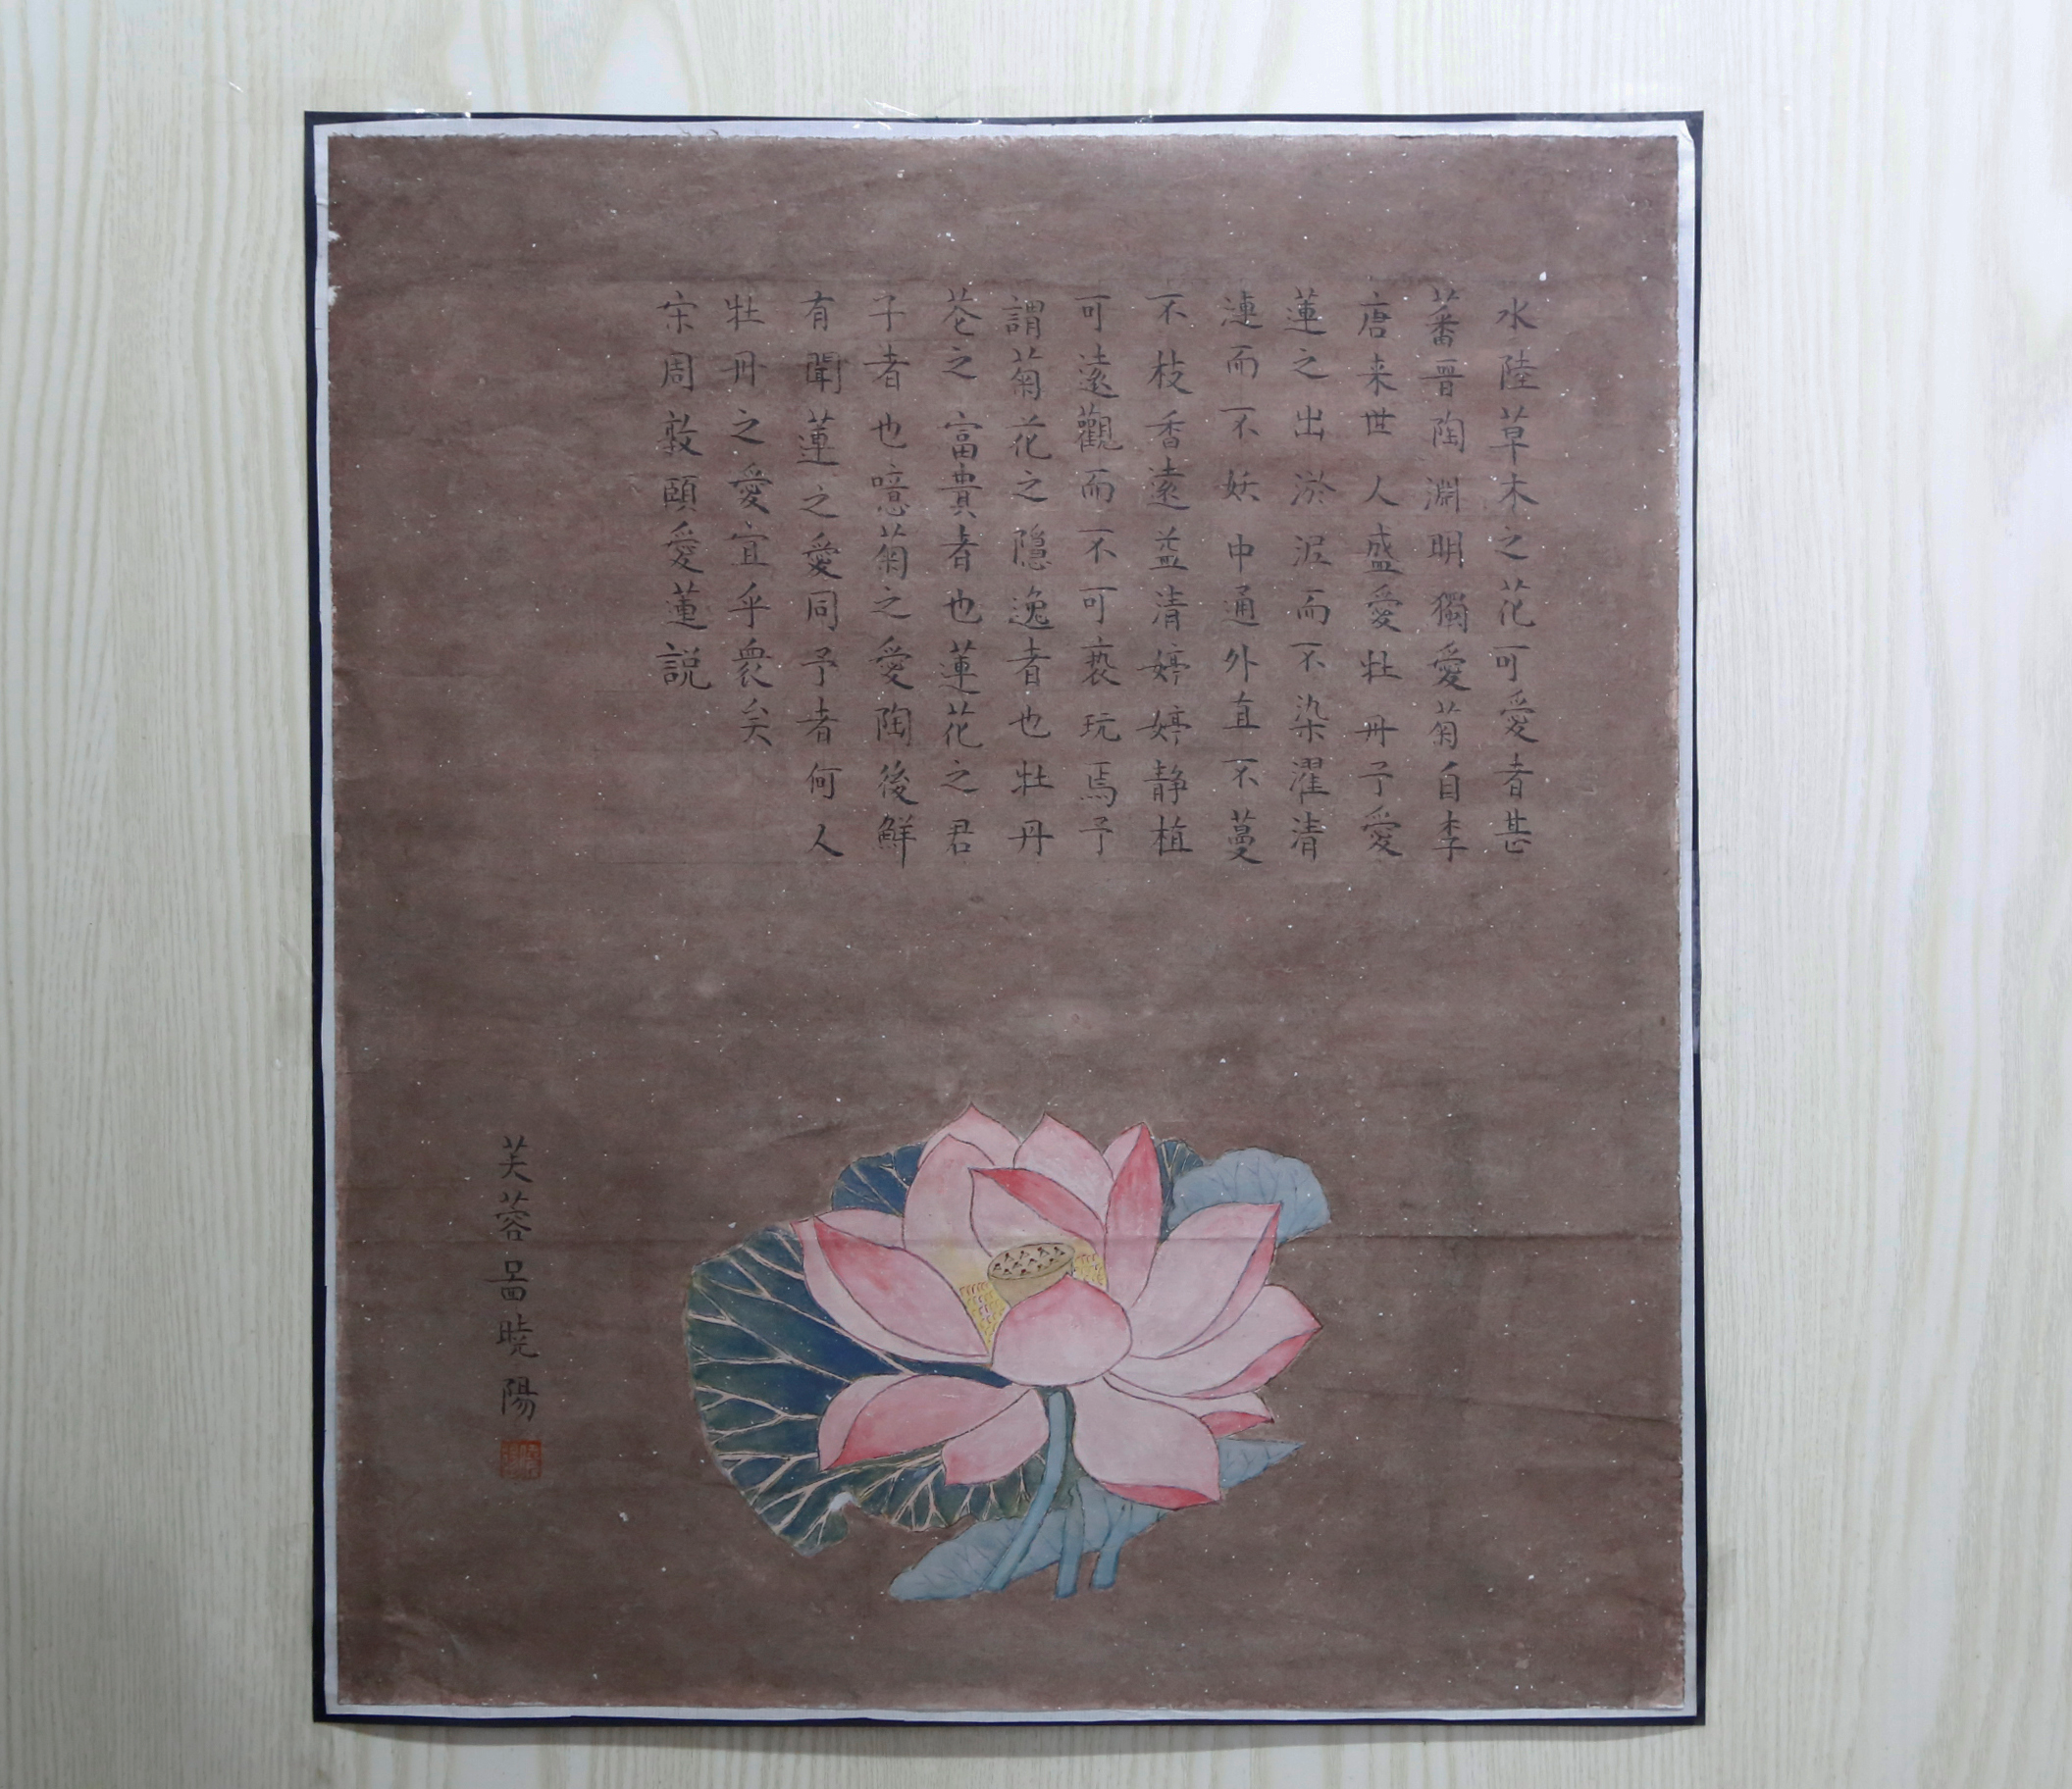 水陸草木之花可愛者甚
蕃晋陶淵明獨愛菊自李
唐来世人盛愛牡丹予愛
蓮之出淤泥而不染濯清
漣而不妖中通外直不蔓
不枝香遠益清婷婷静植
可遠觀而不可褻玩焉予
謂菊花之隱逸者也牡丹
花之富貴者也蓮花之君
子者也噫菊之愛陶後鮮
有聞蓮之愛同予者何人
牡丹之愛宜乎衆矣
宋周敦頤愛蓮説
芙蓉啚曉陽